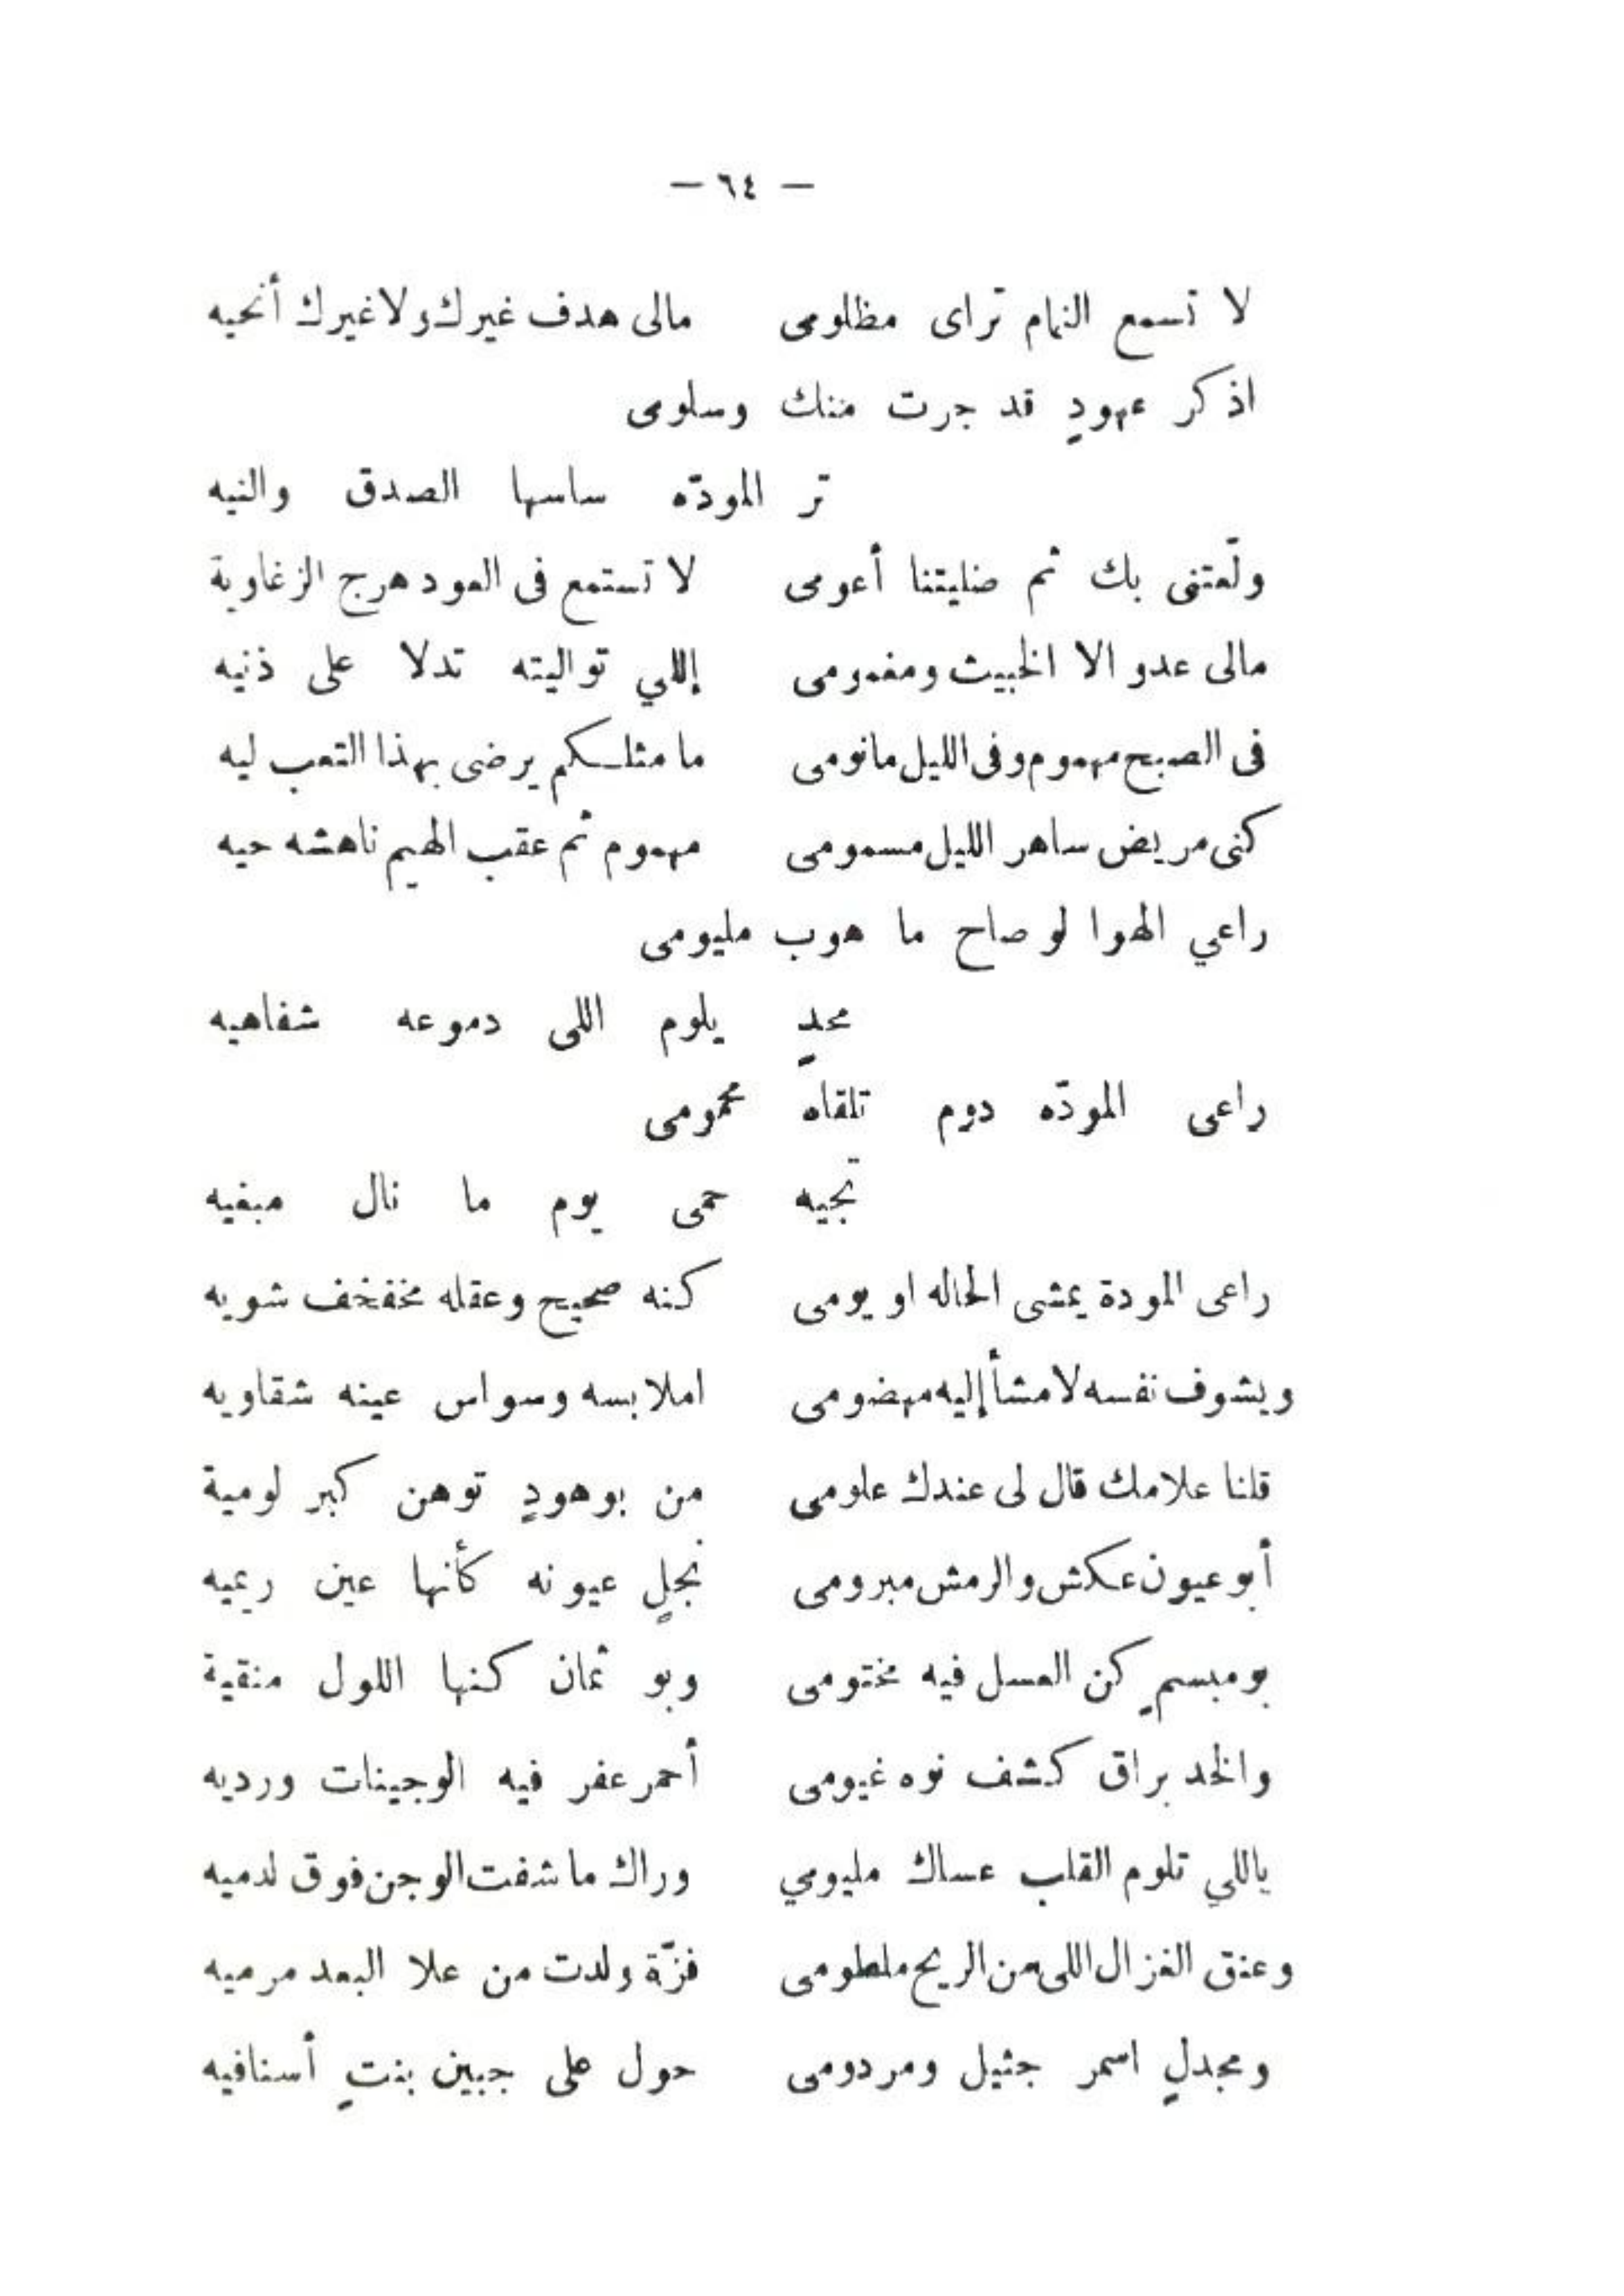 — ٦٤ —
لا تسمع النمام تراى مظلومى مالى هدف غيرك ولا غيرك أنحيه
اذكر عهودٍ قد جرت منك وسلومى
تر المودّه ساسها الصدق والنيه
ولّعتنى بك ثم ضليتنا أعومى لا تستمع فى العود هرج الزغاوية
مالى عدو الا الخبيث ومغمومى إللي تواليته تدلا على ذنيه
فى الصبح مهموم وفى الليل مانومى ما مثلكم يرضى بهذا التعب ليه
كنى مريض ساهر الليل مسمومى مهموم ثم عقب الهيم ناهشه حيه
راعي الهوا لو صاح ما هوب مليومى
محدٍ يلوم اللى دموعه شفاهيه
راعى المودّه دوم تلقاه محمومى
تجيه حمى يوم ما نال مبغيه
راعى المودة يمشى الحاله او يومى كنه صحيح وعقله مخفخف شويه
ويشوف نفسه لا مشأ إليه مهضومى املابسه وسواس عينه شقاويه
قلنا علامك قال لى عندك علومى من بوهودٍ توهن كبر لومية
أبو عيون عكش والرمش مبرومى نجلٍ عيونه كأنها عين ريميه
بو مبسمٍ كن العسل فيه مختومى وبو ثمان كنها اللول منقية
والخد براق كشف نوه غيومى أحمر عفر فيه الوجينات ورديه
ياللي تلوم القلب عساك مليومي وراك ما شفت الوجن فوق لدميه
وعنق الغزال اللى من الريح ملطومى فزّة ولدت من علا البعد مرميه
ومجدلٍ اسمر جثيل ومردومى حول على جبين بنتٍ أسنافيه